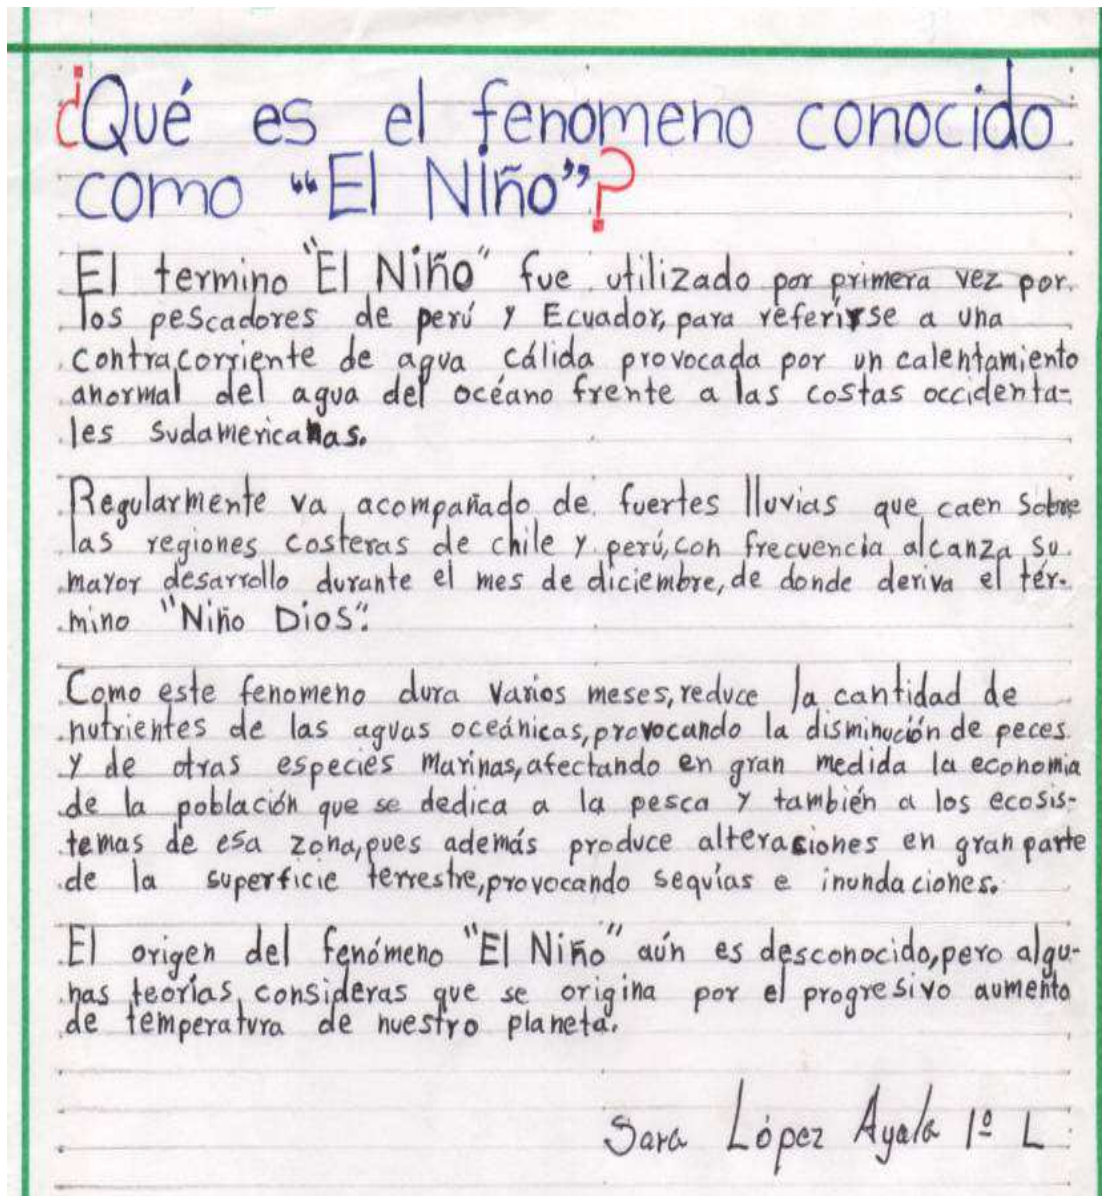 ¿Qué es el fenomeno conocido
como “El Niño”?
El termino "El Niño" fue utilizado por primera vez por
los pescadores de perú y Ecuador, para referirse a una
contracorriente de agua cálida provocada por un calentamiento
anormal del agua del océano frente a las costas occidenta-
les sudamericanas.
Regularmente va acompañado de fuertes lluvias que caen sobre
las regiones costeras de chile y perú, con frecuencia alcanza su
mayor desarrollo durante el mes de diciembre, de donde deriva el tér-
mino "Niño Dios".
Como este fenomeno dura varios meses, reduce la cantidad de
nutrientes de las aguas oceánicas, provocando la disminución de peces
y de otras especies marinas, afectando en gran medida la economia
de la población que se dedica a la pesca y también a los ecosis-
temas de esa zona, pues además produce alteraciones en gran parte
de la superficie terrestre, provocando sequías e inundaciones.
El origen del fenómeno "El Niño" aún es desconocido, pero algu-
nas teorías, consideras que se origina por el progresivo aumento
de temperatura de nuestro planeta.
Sara López Ayala 1º L